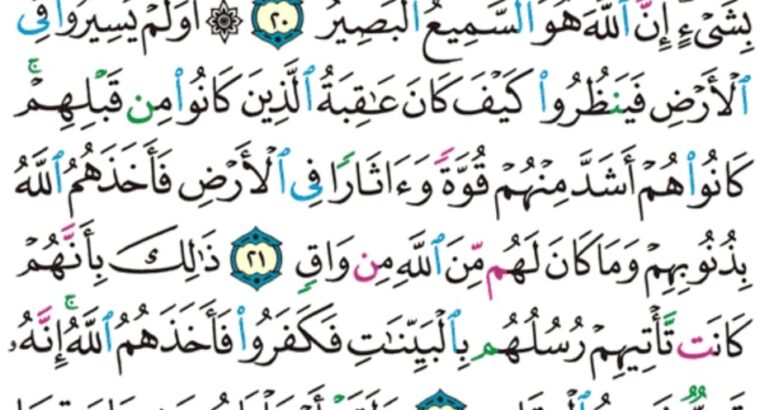 بِشَىْءٍ إِنَّ ٱللَّهَ هُوَ ٱلسَّمِيعُ ٱلْبَصِيرُ ٢٠ ۞ أَوَلَمْ يَسِيرُوا۟ فِى
ٱلْأَرْضِ فَيَنظُرُوا۟ كَيْفَ كَانَ عَٰقِبَةُ ٱلَّذِينَ كَانُوا۟ مِن قَبْلِهِمْ ۚ
كَانُوا۟ هُمْ أَشَدَّ مِنْهُمْ قُوَّةً وَءَاثَارًا فِى ٱلْأَرْضِ فَأَخَذَهُمُ ٱللَّهُ
بِذُنُوبِهِمْ وَمَا كَانَ لَهُم مِّنَ ٱللَّهِ مِن وَاقٍ ٢١ ذَٰلِكَ بِأَنَّهُمْ
كَانَت تَّأْتِيهِمْ رُسُلُهُم بِٱلْبَيِّنَٰتِ فَكَفَرُوا۟ فَأَخَذَهُمُ ٱللَّهُ ۚ إِنَّهُۥ